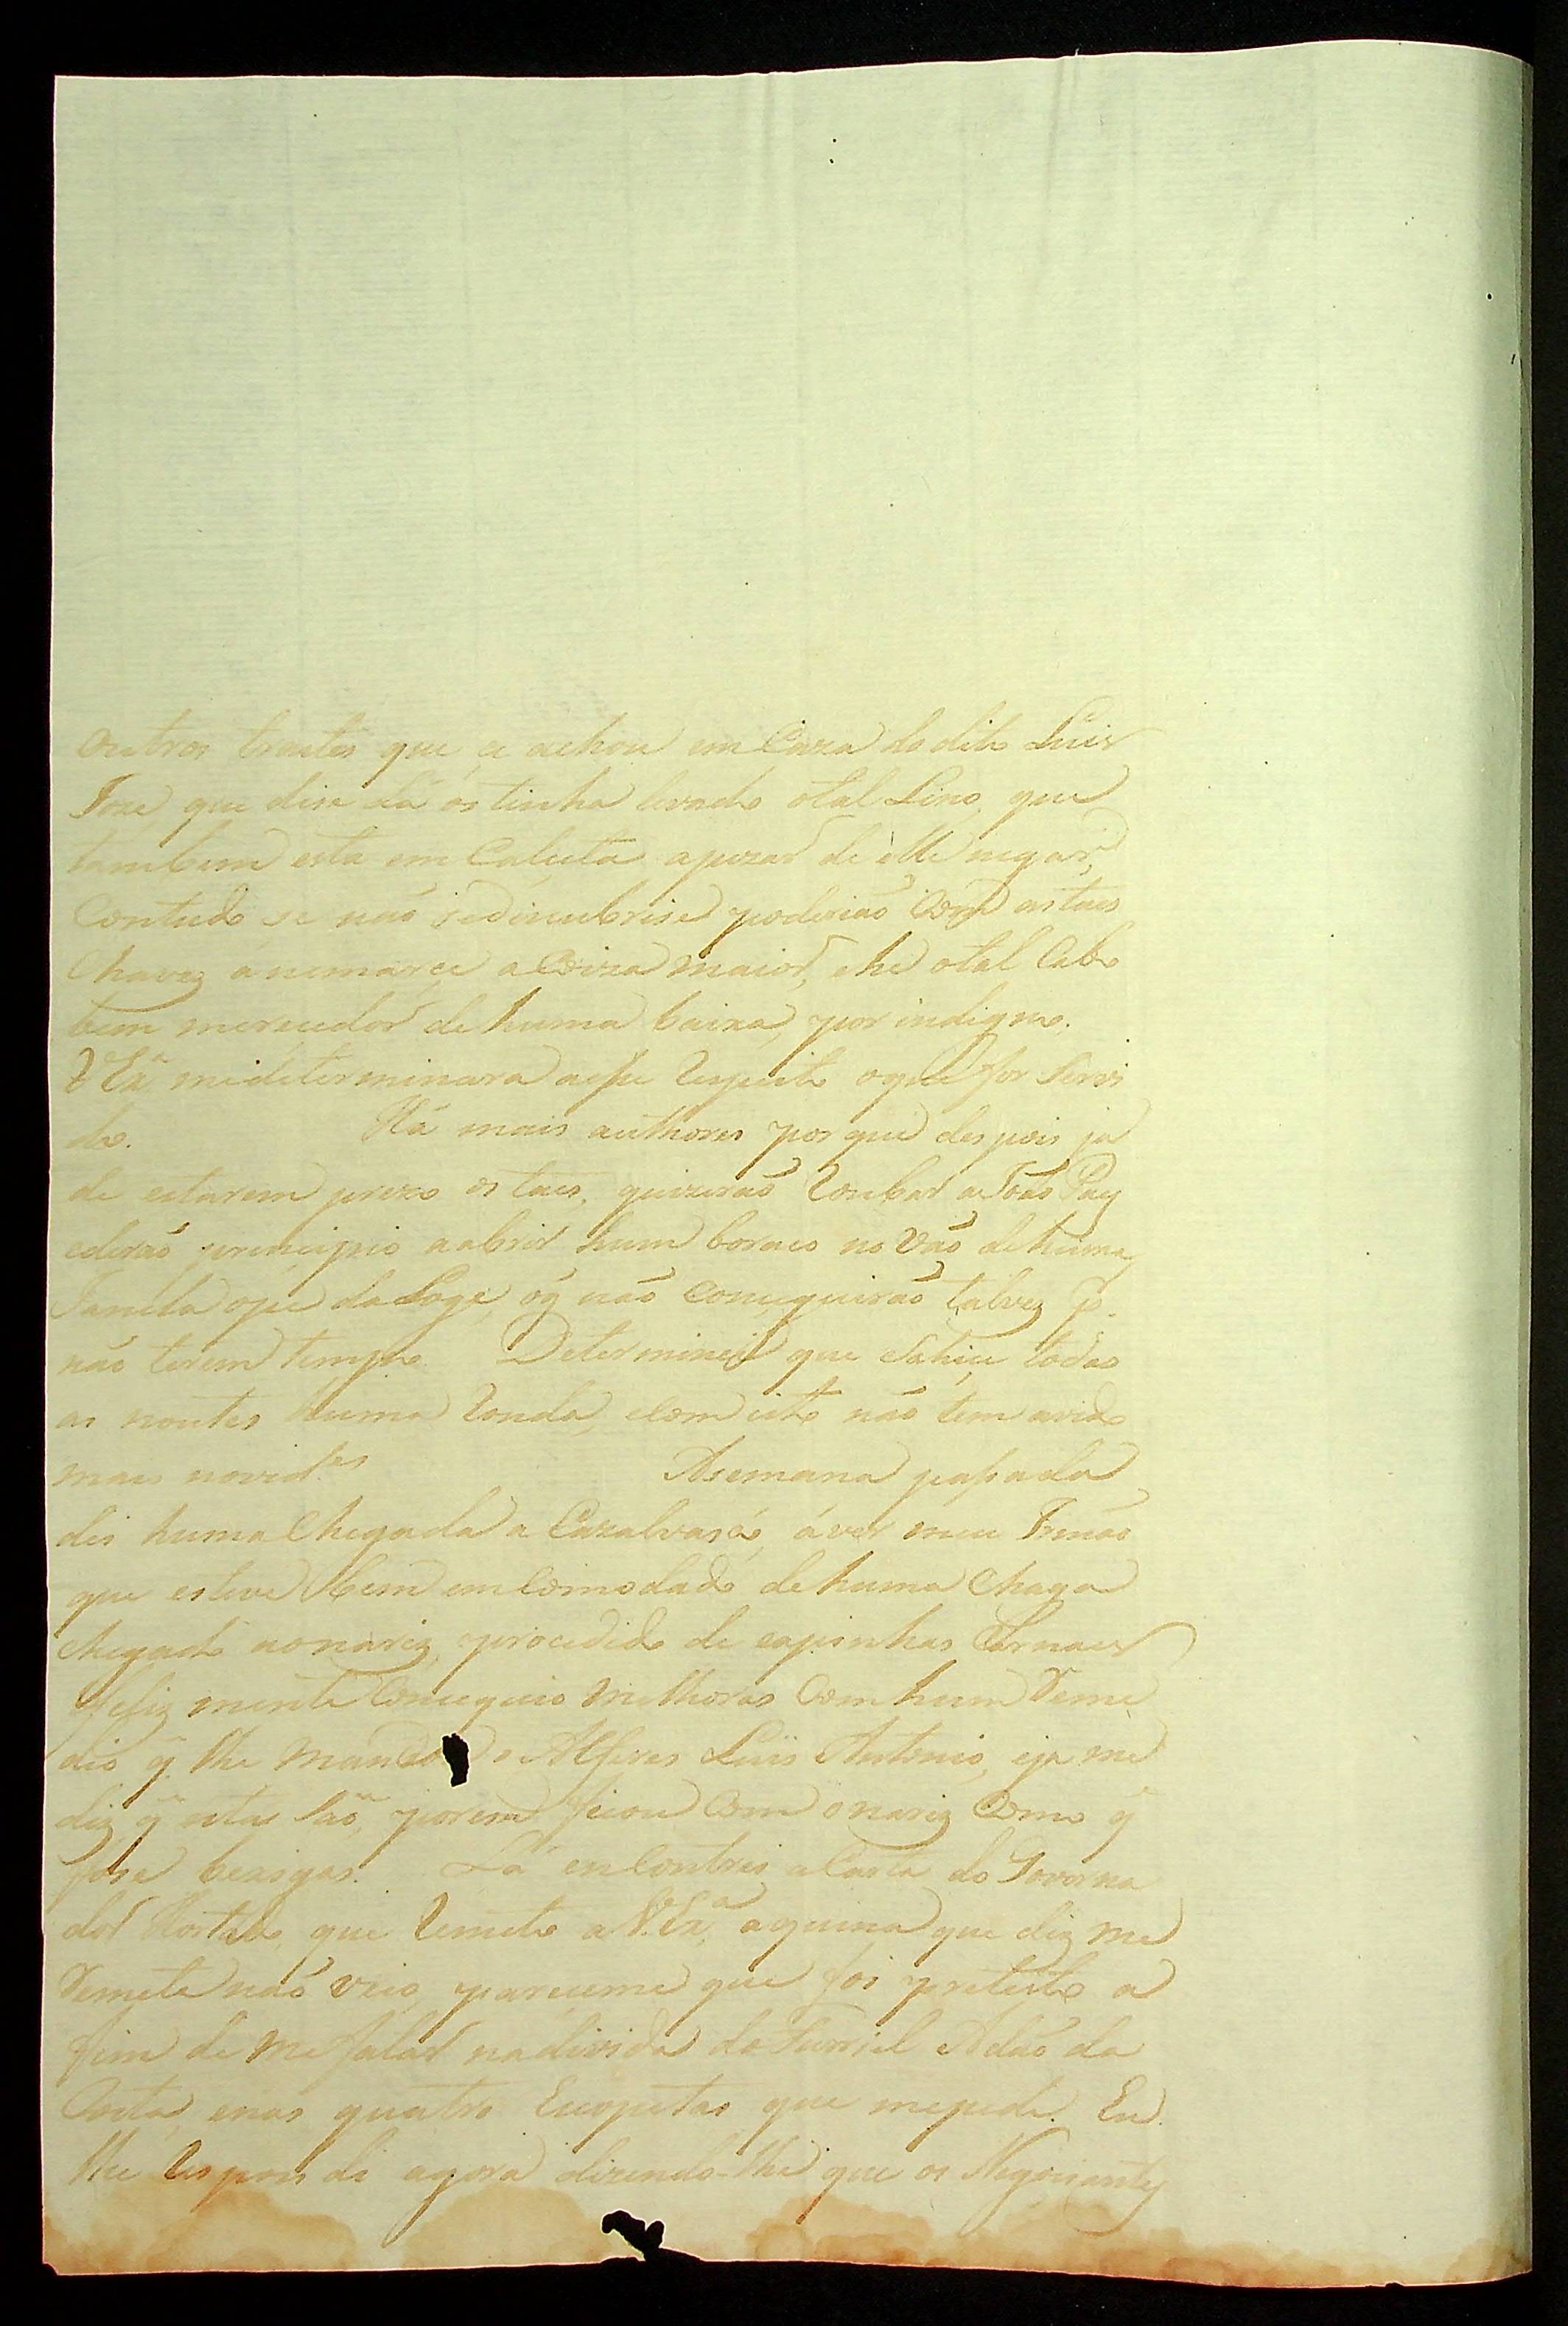 outros trastes que se achou em Caza do dito Luis
Joze, que dise Lá os tinha levado otal Lino, que
tambem esta em Calceta apezar de elle negar,
Contudo se não sedescubrise poderião Com astaes
Chavez animarce a Coiza maior, ehe otal Cabo
bem merecedor de huma baixa, por indigno.
VExª medeterminara aeste respeito oque for Servi
do. Há mais authores por que despois ja
de estarem prezo os taes, quizerão Roubar a João Paiz
ederão principio aabrir hum boraco no Vão dehuma
Janela ope da Loge, oq̃ não Conceguirão talvez p.
não terem tempo. Determinei que Sahice todas
as noutes huma Ronda, eCom isto não tem avido
mais novid.es Asemana paſsada
dei huma Chegada a Cazalvasco, áver meu Irmão
que esteve bem emComodado de huma Chaga
chegado aonariz, procedido de espinhas Carnaes
feliz mente Conceguio Melhoras Com hum Reme
dio q̃ lhe Mandou o Alferes Luis Antonio, eja me
diz q̃ esta São, porem ficou Com onariz Como q̃
fose bexigas. Lá enContrei aCarta do Governa
dor Hortado, que Remeto a V.Exª, aquina que diz me
Remete não veio, pareceme que foi pretesto a
fim de Me falar nadivida do Furriel Adão da
Costa, enas quatro Escopetas que mepede. Eu
lhe Respondi agora dizendo-lhe que os Negociantes